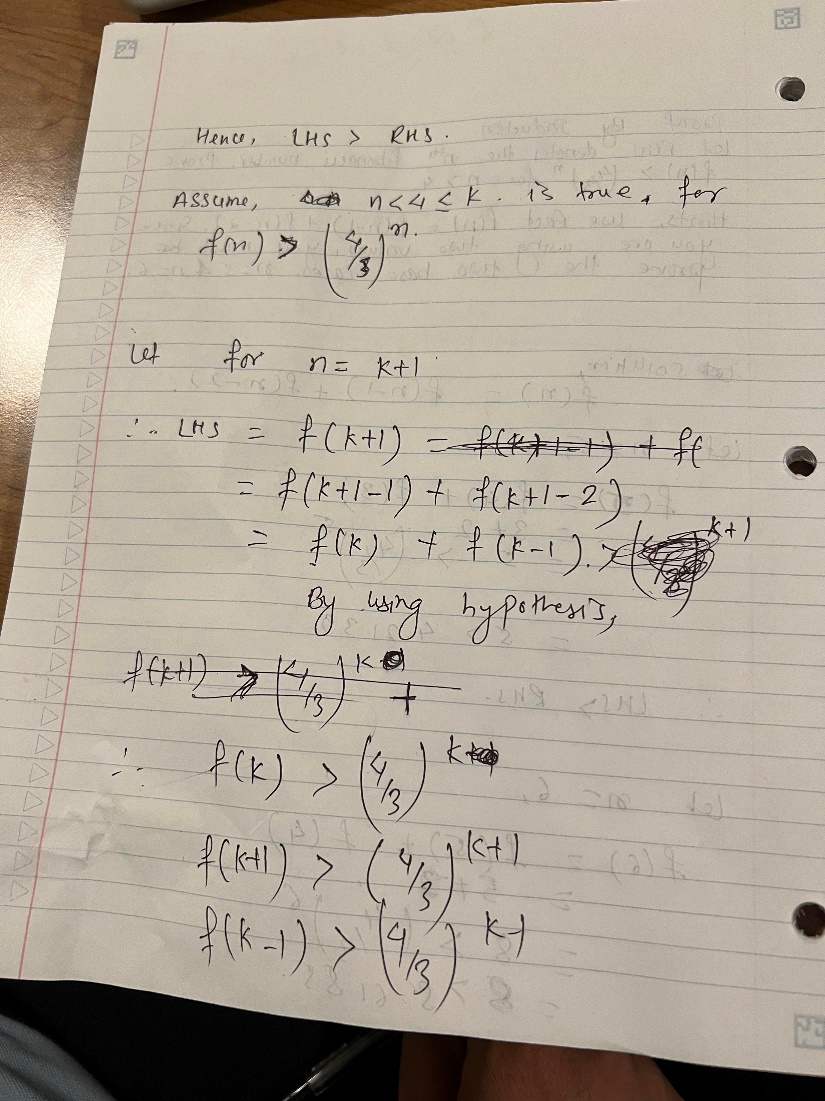 Hence, LHS > RHS.
Assume, n<4≤k. is true, for
f(n) > (4/3)^n.
Let for n= k+1
∴ LHS = f(k+1) = f(k+1-1) + f(
= f(k+1-1) + f(k+1-2)
= f(k) + f(k-1). > ( )^k+1
By using hypothesis,
f(k+1) > (4/3)^k +
∴ f(k) > (4/3)^k
f(k+1) > (4/3)^k+1
f(k-1) > (4/3)^k-1